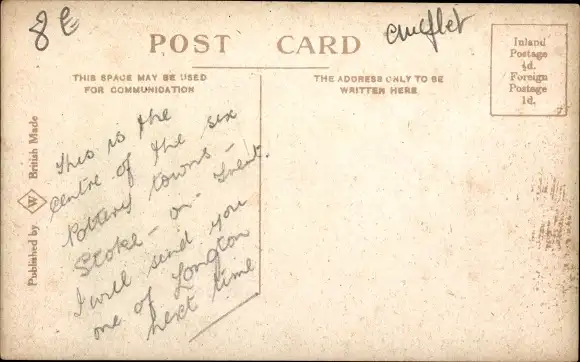 8 E
cmflet
POST CARD
THIS SPACE MAY BE USED
FOR COMMUNICATION
THE ADDRESS ONLY TO BE
WRITTEN HERE
Inland
Postage
½d.
Foreign
Postage
1d.
Published by W British Made
This is the
centre of the six
Pottery towns -
Stoke - on - Trent.
I will send you
one of Longton
next time